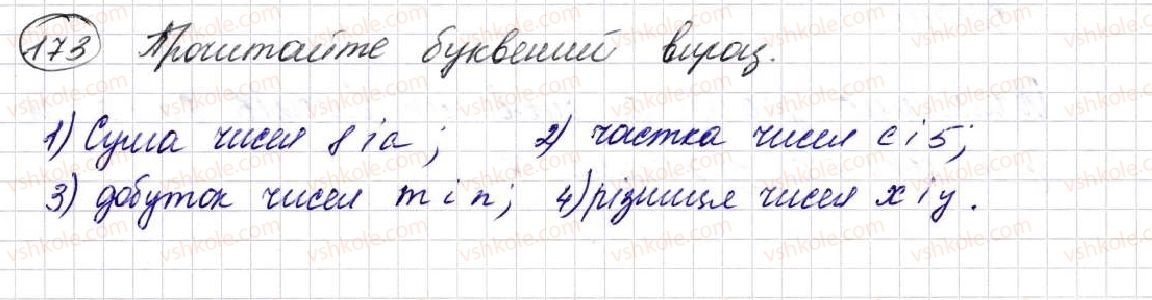 173 Прочитайте буквений вираз.
1) Сума чисел 8 і a; 2) частка чисел c і 5;
3) добуток чисел m і n; 4) різниця чисел x і y.